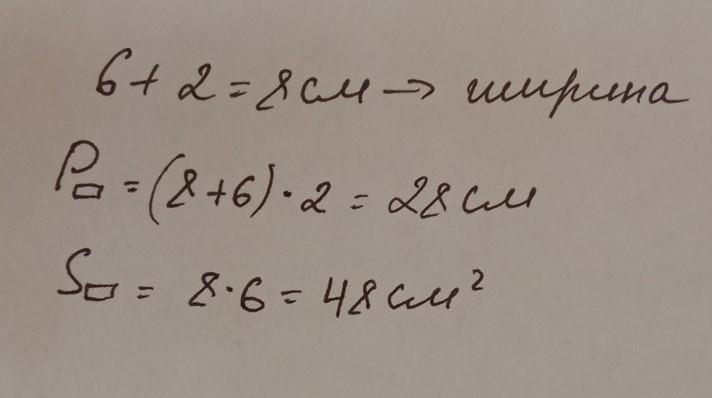 6 + 2 = 8 см → ширина
P▭ = (8 + 6) · 2 = 28 см
S▭ = 8 · 6 = 48 см²